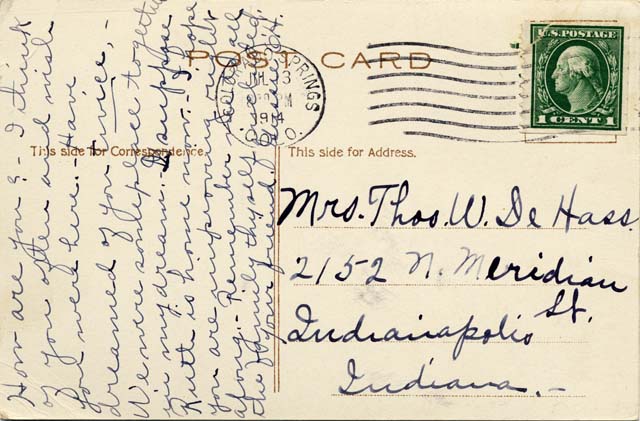 POST CARD
COLORADO SPRINGS
JUL 3
PM
1914
COLO.
U.S. POSTAGE
1 CENT 1
This side for Correspondence.
This side for Address.
Mrs. Thos. W. De Hass.
2152 N. Meridian
St.
Indianapolis
Indiana.-
How are you? - I think
of you often and wish
you were here. Have
dreamed of you twice,-
We were so happy all together
in my dream. I suppose
Ruth is home now. - I hope
you are improving right
along. - Remember me to all
the family thyself included.
Your friend